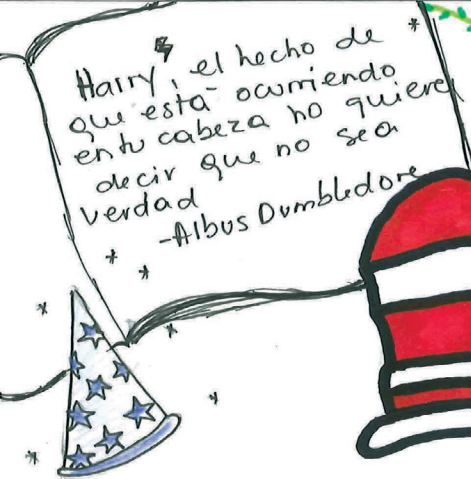 Harry, el hecho de
que está ocurriendo
en tu cabeza no quiere
decir que no sea
verdad
-Albus Dumbledore